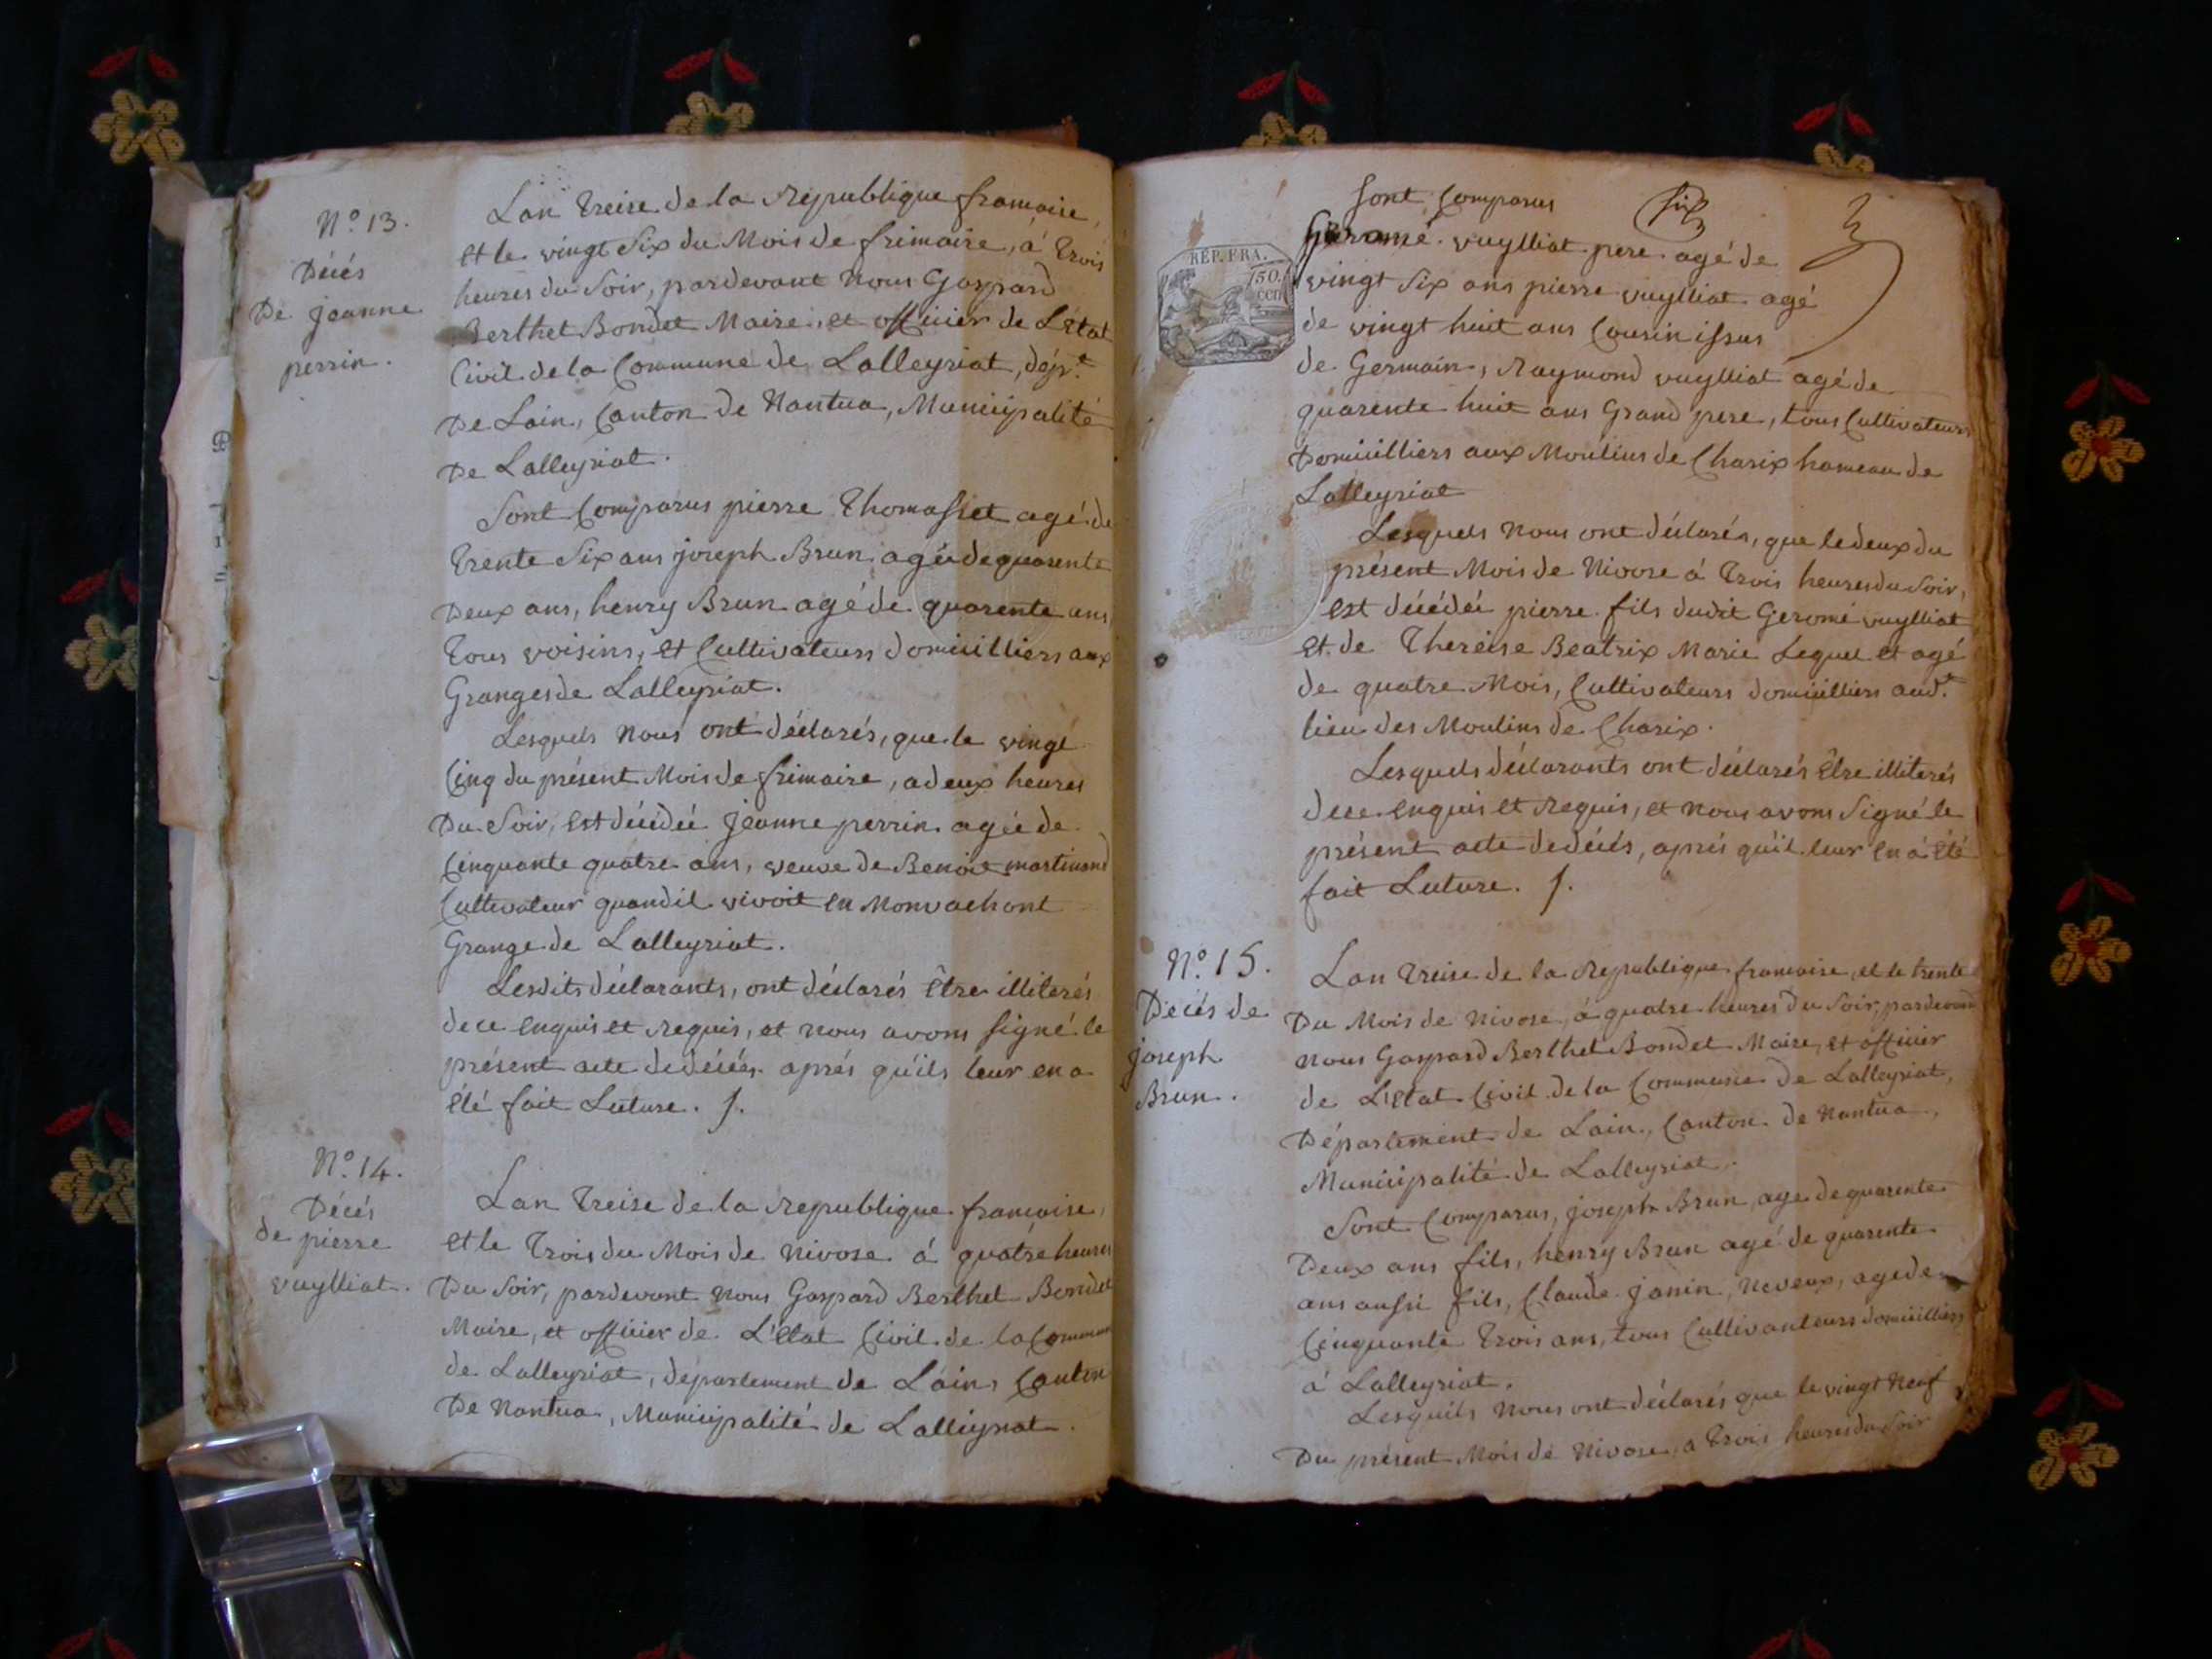 N.o 13.
Décés
De jeanne
perrin.
Lan treise de la republique francoise,
et le vingt six du Mois de frimaire, á trois
heures du Soir, pardevant Nous Gaspard
Berthet Bondet Maire, et officier de L'Etat
Civil de la Commune de Lalleyriat, dépt.
De Lain, Canton de Nantua, Municipalité
De Lalleyriat.
Sont Comparus pierre Thomasset agé de
trente Six ans joseph Brun agée de quarente
Deux ans, henry Brun agé de quarente ans
tous voisins, et Cultivateurs domicilliers aux
Granges de Lalleyriat.
Lesquels Nous ont déclarés, que le vingt
Cinq du présent Mois de frimaire, a deux heures
Du Soir, est décédée Jeanne perrin agée de
Cinquante quatre ans, veuve de Benoit martinand
Cultivateur quand il vivoit en Monvachont
Grange de Lalleyriat.
Lesdits déclarants, ont déclarés être illiterés
de ce enquis et requis, et nous avons signé le
présent acte de décés aprés qu'ils leur en a
été fait Lecture. /.
N.o 14.
Décés
de pierre
vuylliat.
Lan treise de la republique francoise,
et le trois du Mois de Nivose á quatre heures
Du Soir, pardevant Nous Gaspard Berthet Bondet
Maire, et officier de L'Etat Civil de la Commune
de Lalleyriat, département de Lain, Canton
De Nantua, Municipalité de Lalleyriat.
Sont Comparus
Geromé vuylliat pere agé de
RÉP. FRA.
50.
vingt Six ans pierre vuylliat agé
de vingt huit ans Cousin issus
de Germain, Raymond vuylliat agé de
quarente huit ans Grand pere, tous Cultivateurs
Domicilliers aux Moulins de Charix hameau de
Lalleyriat
Lesquels Nous ont déclarés, que le deux du
présent Mois de Nivose á trois heures du Soir,
est décédée pierre fils dudit Geromé vuylliat
et de Thereise Beatrix Marie Lequel et agé
de quatre Mois, Cultivateurs domicilliers aud.t
lieu des Moulins de Charix.
Lesquels déclarants ont déclarés être illiterés
de ce enquis et requis, et nous avons Signé le
présent acte de décés, aprés qu'il leur en á été
fait Lecture. /.
N.o 15.
Décés de
joseph
Brun.
Lan treise de la republique francoise, et le trente
Du Mois de Nivose, á quatre heures du Soir, pardevant
Nous Gaspard Berthet Bondet Maire, et officier
de L'Etat Civil de la Commune de Lalleyriat,
Département de Lain, Canton de Nantua,
Municipalité de Lalleyriat.
Sont Comparus, joseph Brun, age de quarente
Deux ans fils, henry Brun agé de quarente
ans aussi fils, Claude janin, Neveux, age de
Cinquante trois ans, tous Cultivanteurs domicilliers
á Lalleyriat.
Lesquils Nous ont déclarés que le vingt Neuf
Du présent Mois de Nivose, a trois heures du Soir